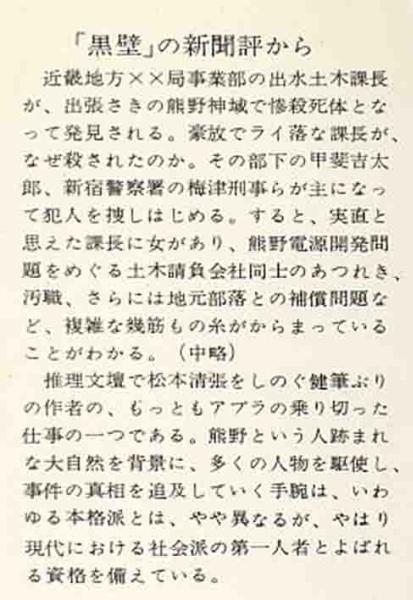 「黒壁」の新聞評から
近畿地方××局事業部の出水土木課長
が、出張さきの熊野神域で惨殺死体とな
って発見される。豪放でライ落な課長が、
なぜ殺されたのか。その部下の甲斐吉太
郎、新宿警察署の梅津刑事らが主になっ
て犯人を捜しはじめる。すると、実直と
思えた課長に女があり、熊野電源開発問
題をめぐる土木請負会社同士のあつれき、
汚職、さらには地元部落との補償問題な
ど、複雑な幾筋もの糸がからまっている
ことがわかる。（中略）
推理文壇で松本清張をしのぐ健筆ぶり
の作者の、もっともアブラの乗り切った
仕事の一つである。熊野という人跡まれ
な大自然を背景に、多くの人物を駆使し、
事件の真相を追及していく手腕は、いわ
ゆる本格派とは、やや異なるが、やはり
現代における社会派の第一人者とよばれ
る資格を備えている。